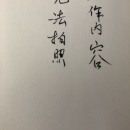 作内容
无法拍照